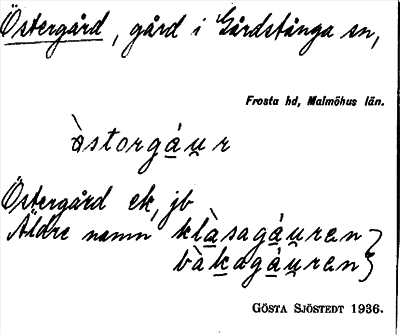 Östergård, gård i Gårdstånga sn,
Frosta hd, Malmöhus län.
àstorgáu̯r
Östergård ek, jb
Äldre namn klàsagáu̯ren }
bàkagáu̯ren }
GÖSTA SJÖSTEDT 1936.